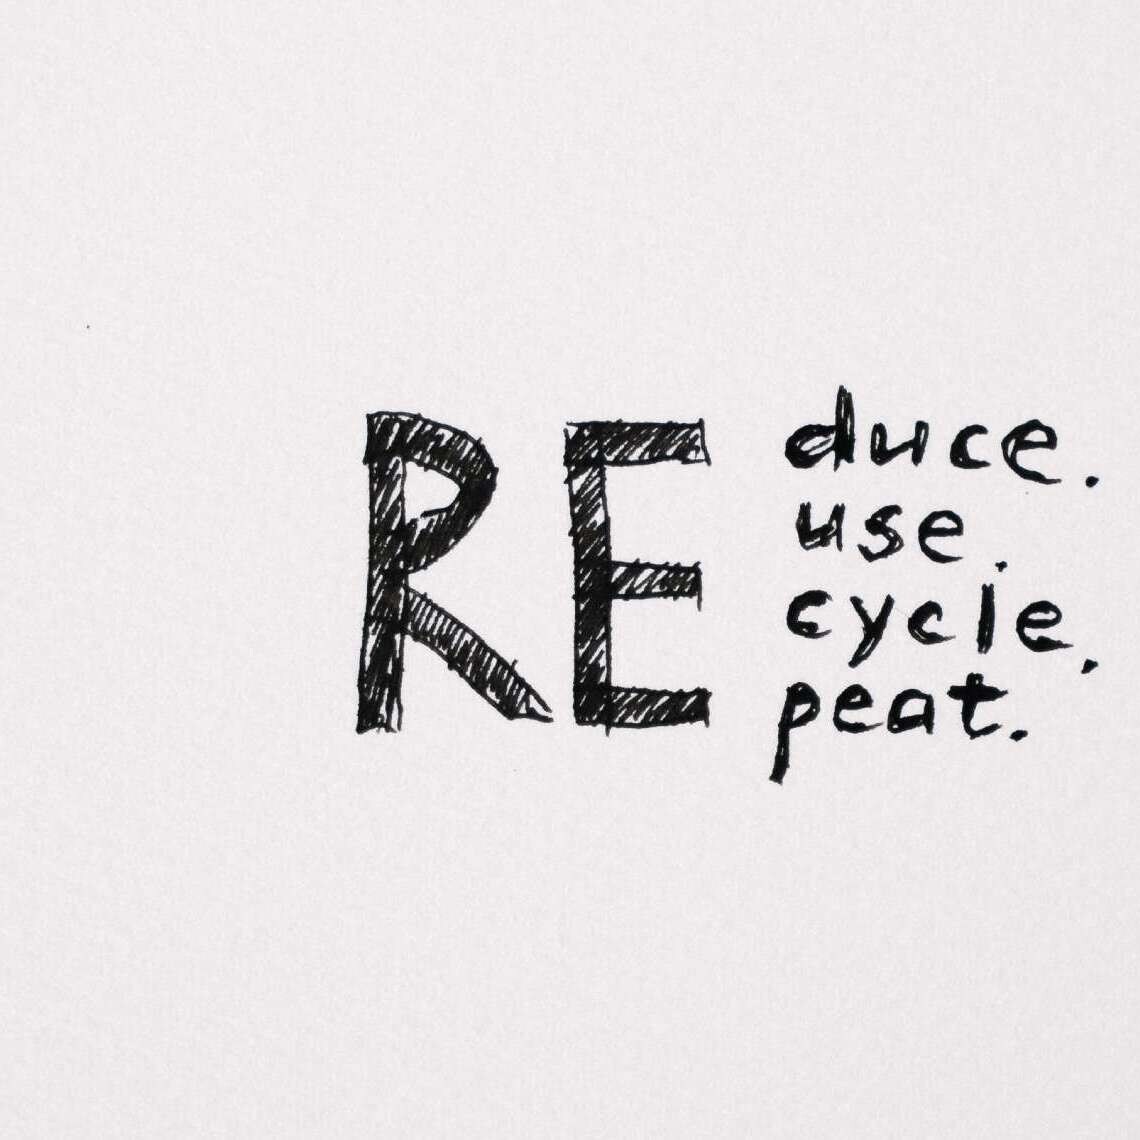 RE duce.
use.
cycle.
peat.